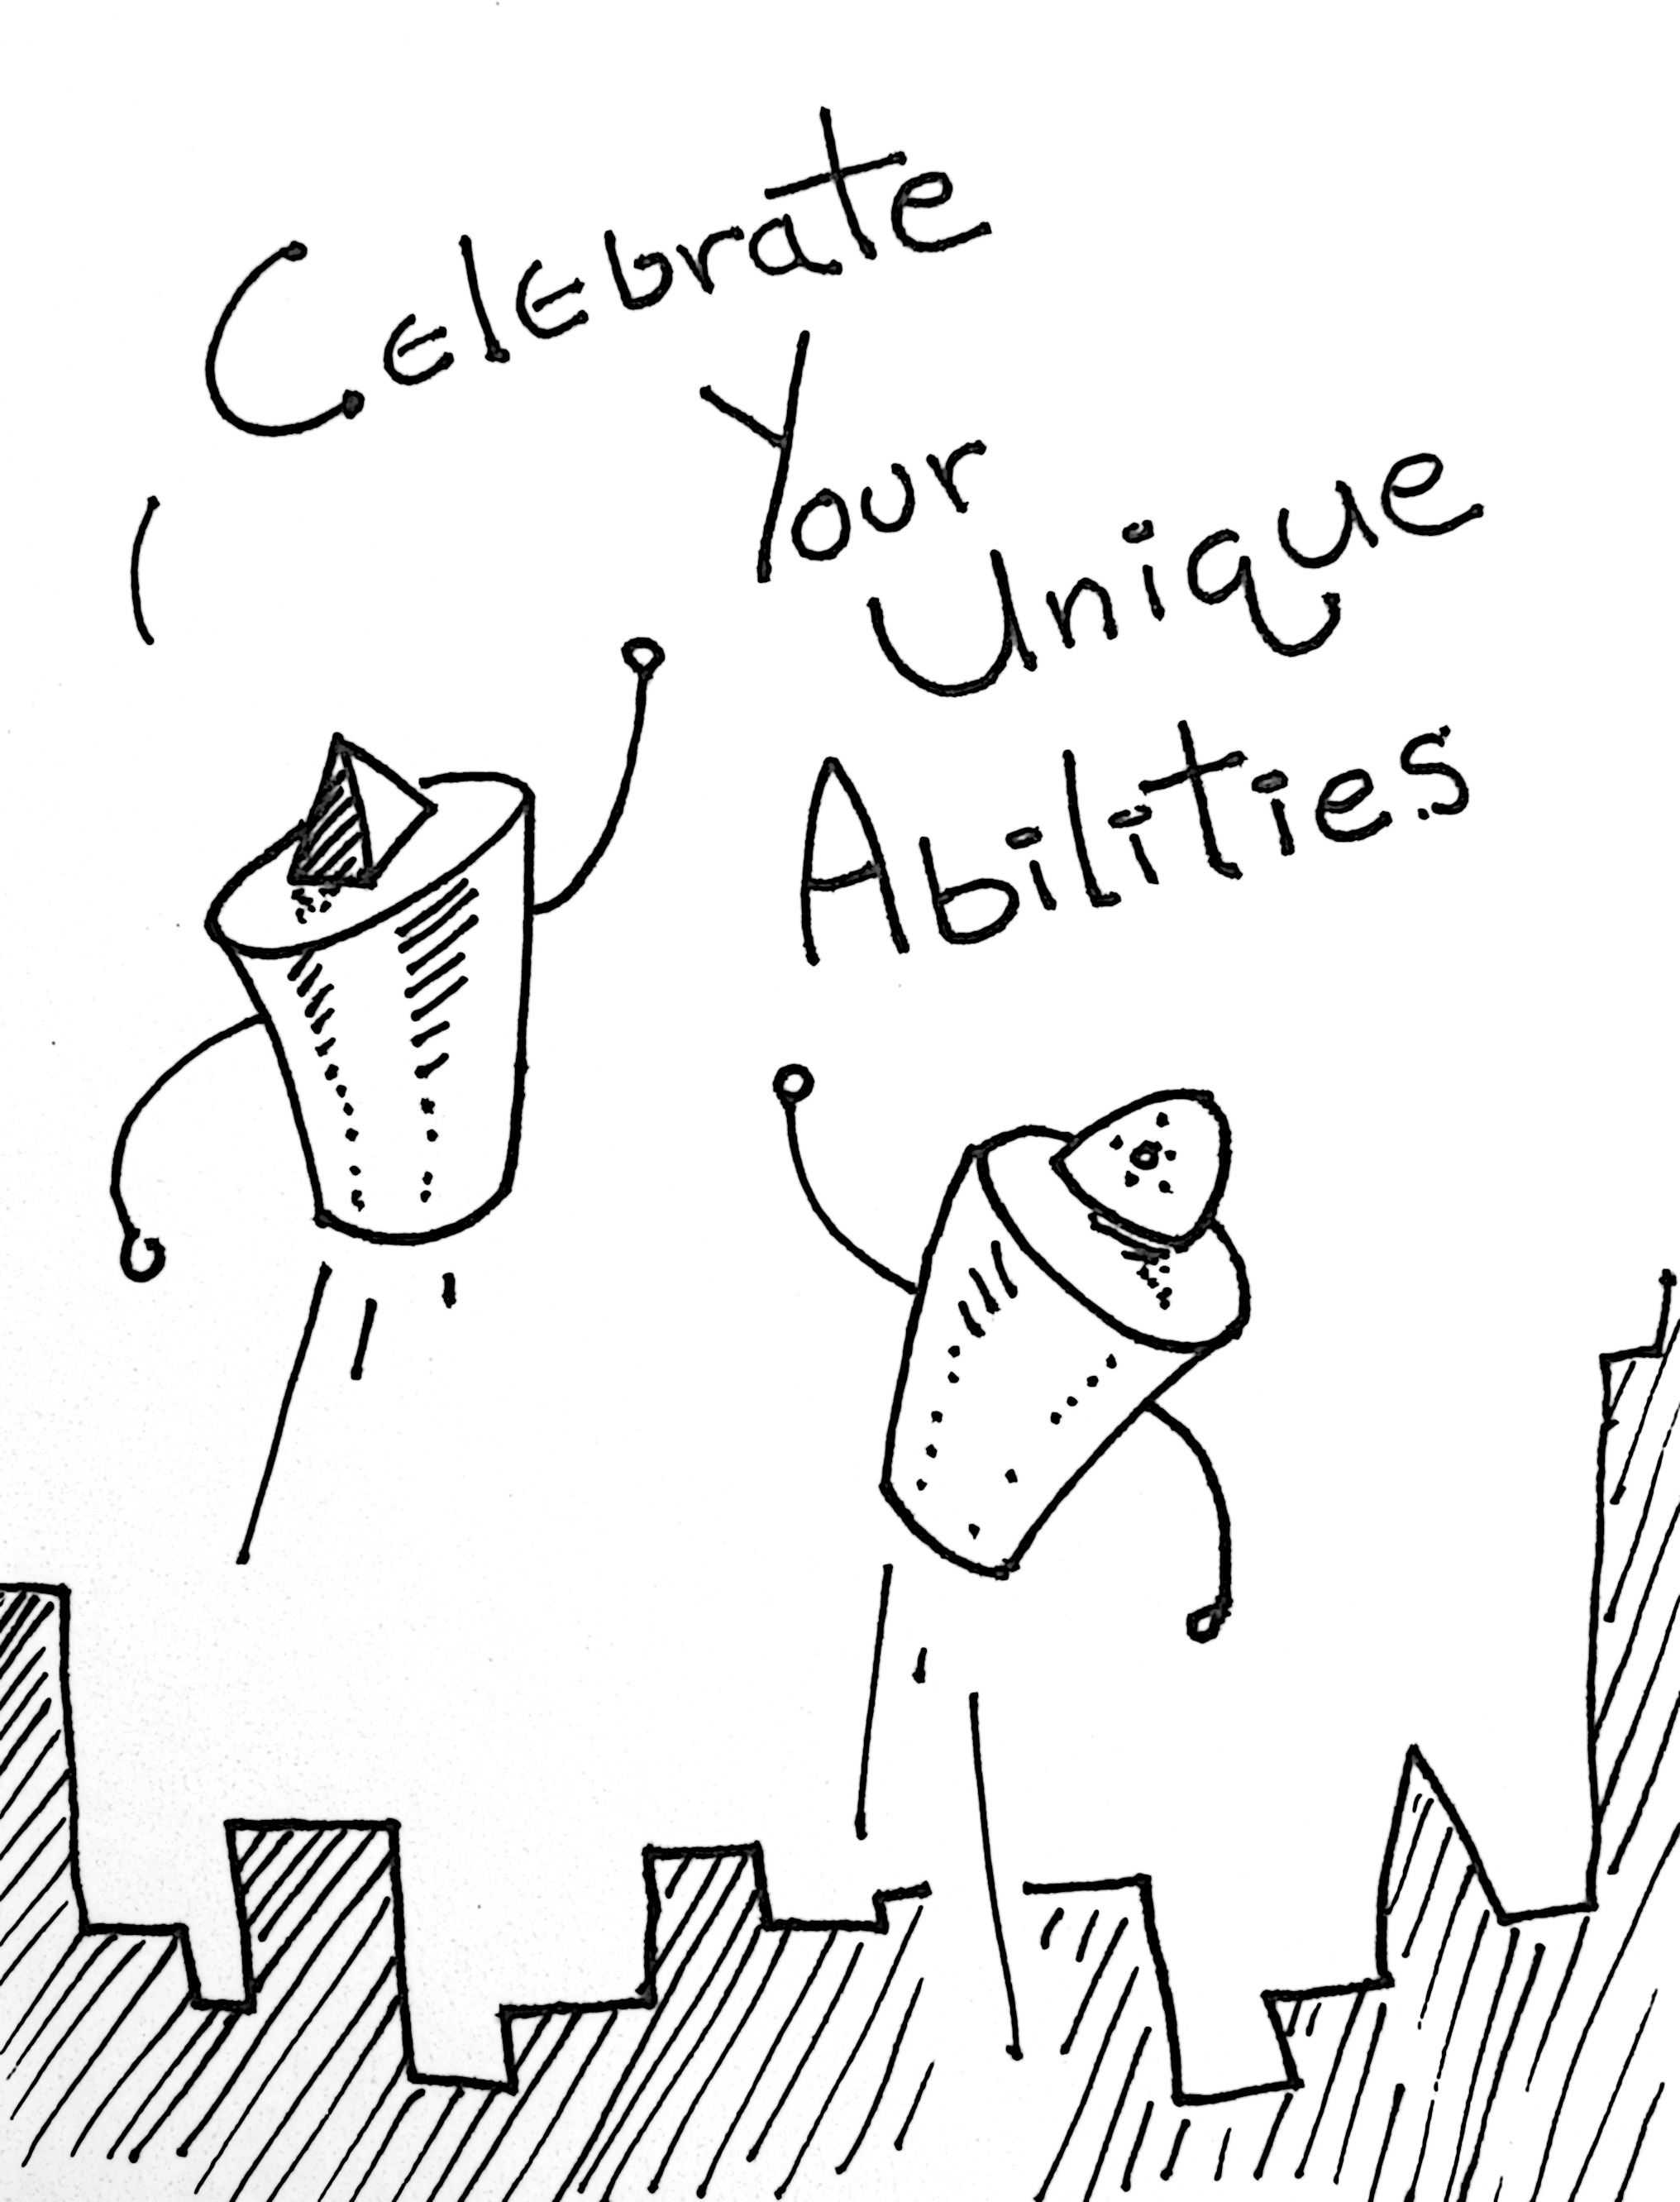 Celebrate
Your
Unique
Abilities